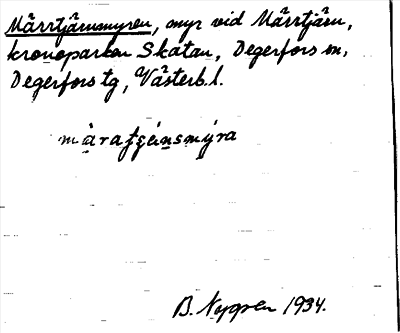 Märrtjärnsmyren, myr vid Märrtjärn,
kronoparken Skatan, Degerfors sn,
Degerfors tg, Västerb. l.
B. Nygren 1934.